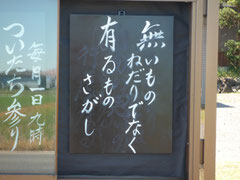 無いもの
ねだりでなく
有るもの
さがし
毎月一日九時
ついたち参り